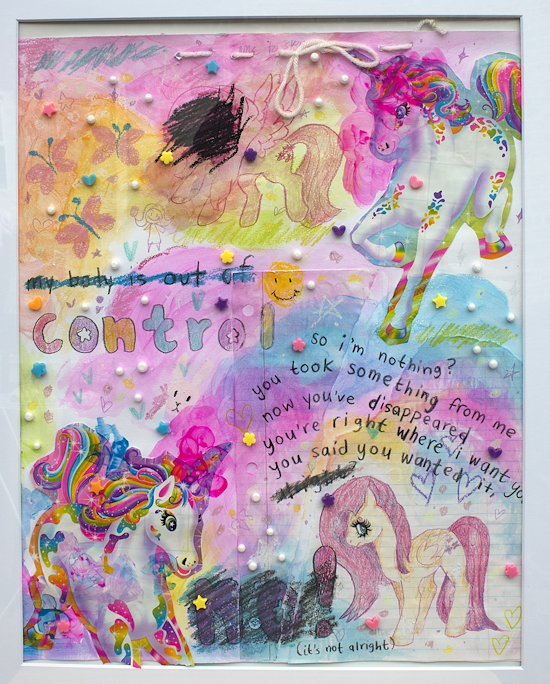 my body is out of
control
so i'm nothing?
you took something from me
now you've disappeared
you're right where i want yo
you said you wanted it,
no!
(it's not alright)